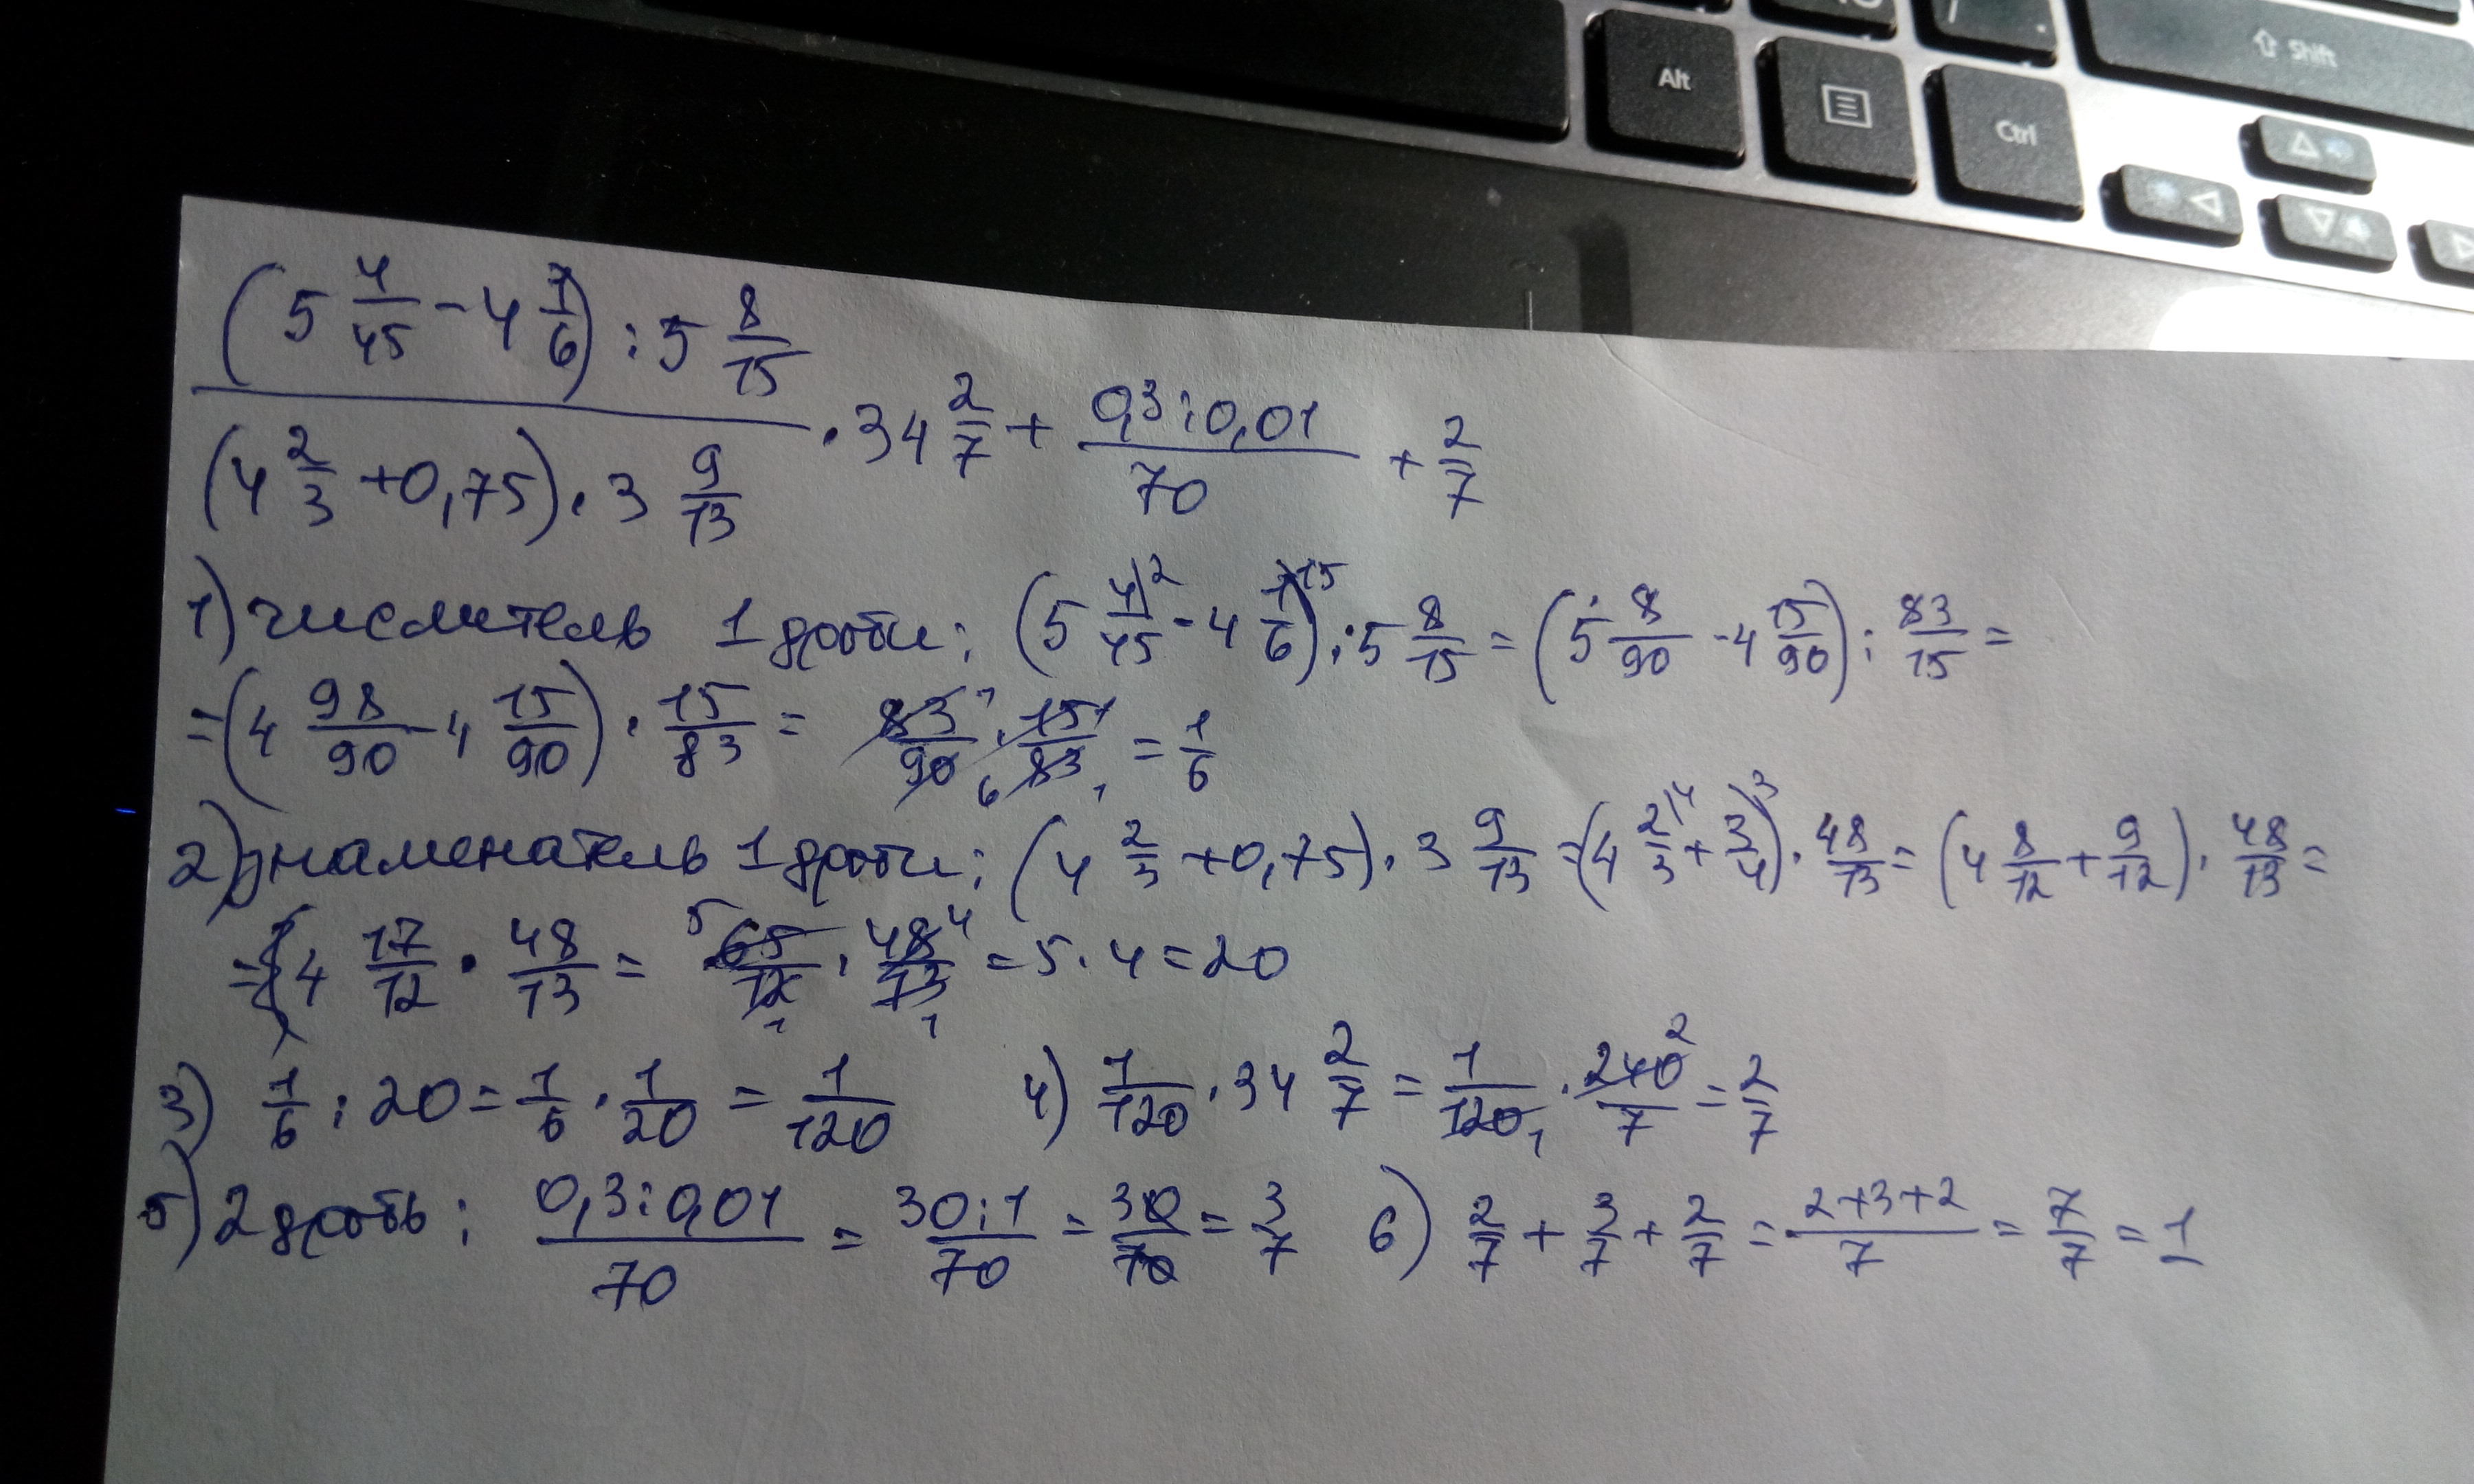 Alt
Ctrl
⇧ Shift
(5 4/45 - 4 1/6) : 5 8/15
(4 2/3 + 0,75) · 3 9/13
· 34 2/7 + (0,3 : 0,01)/70 + 2/7
1) числитель 1 дроби: (5 4/45 - 4 1/6) : 5 8/15 = (5 8/90 - 4 15/90) : 83/15 =
= (4 98/90 - 4 15/90) · 15/83 = 83/90 · 15/83 = 1/6
2) знаменатель 1 дроби: (4 2/3 + 0,75) · 3 9/13 = (4 2/3 + 3/4) · 48/13 = (4 8/12 + 9/12) · 48/13 =
= 4 17/12 · 48/13 = 65/12 · 48/13 = 5 · 4 = 20
3) 1/6 : 20 = 1/6 · 1/20 = 1/120 4) 1/120 · 34 2/7 = 1/120 · 240/7 = 2/7
5) 2 дробь: (0,3 : 0,01)/70 = (30 : 1)/70 = 30/70 = 3/7 6) 2/7 + 3/7 + 2/7 = (2+3+2)/7 = 7/7 = 1